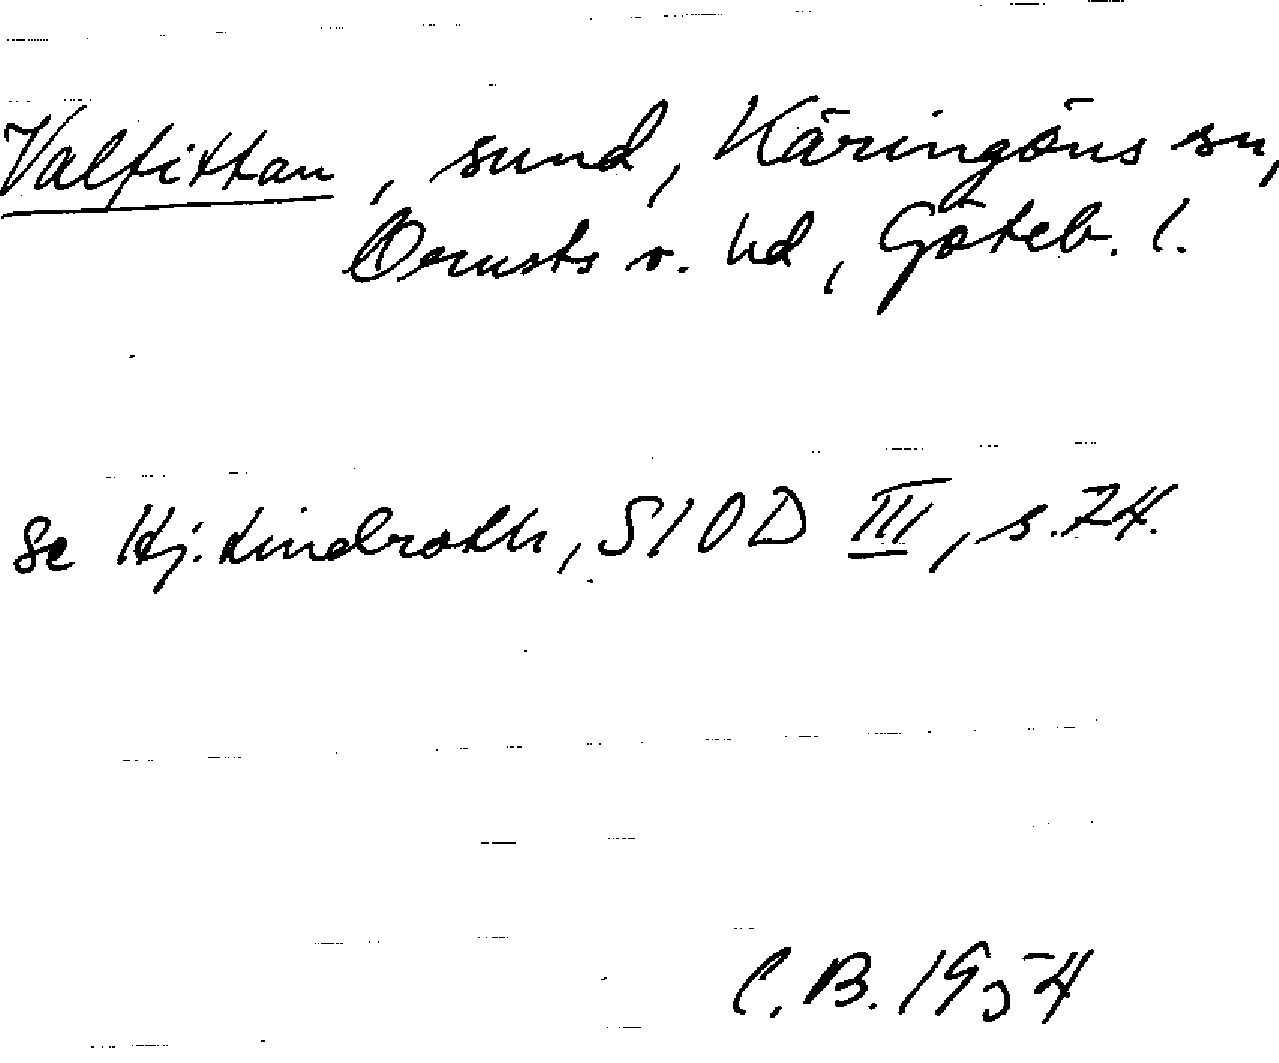 Valfittan, sund, Käringöns sn,
Orusts v. hd, Göteb. l.
Se Hj. Lindroth, SIOD III, s. 74.
C.B. 1954